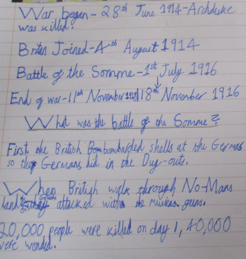 War began - 28th June 1914 - Archduke
was killed.
Britain Joined - 4th August 1914
Battle of the Somme - 1st July 1916
End of war - 11th November 18th November 1916
What was the battle of the Somme?
First the British Bombarded shells at the Germans
so the Germans hid in the Dug-outs.
When British walk through No-Mans
land attacked with guns.
20,000 people were killed on day 1, 40,000
were wonded.